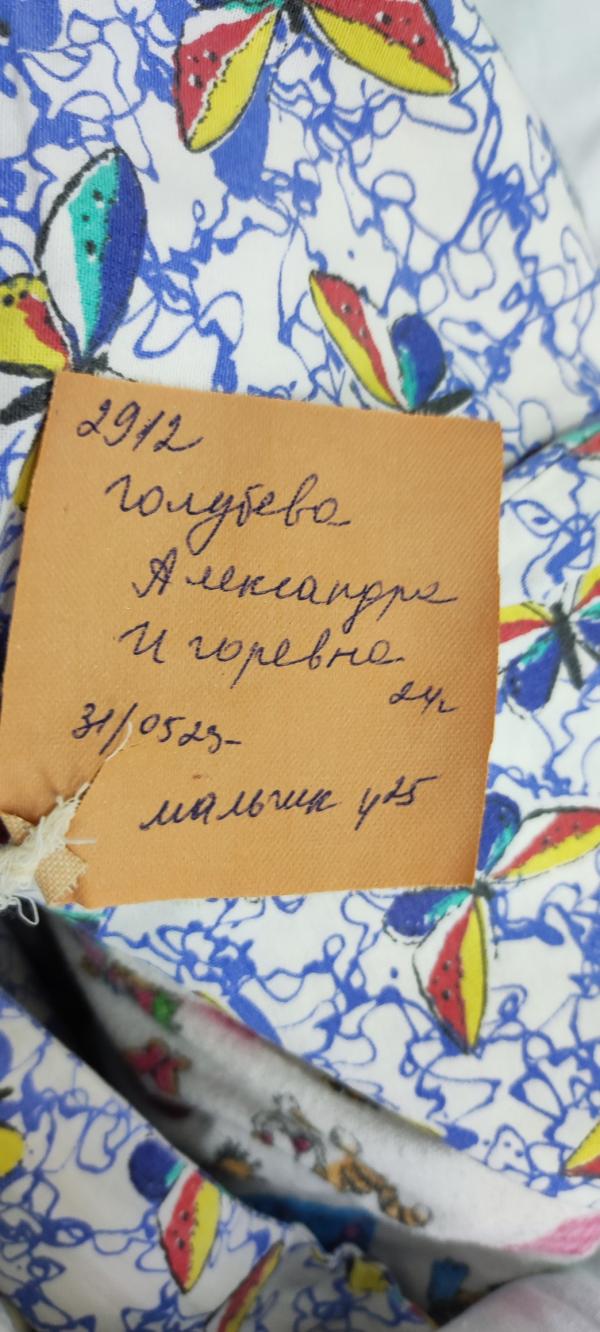 2912
Голубева
Александра
Игоревна
24г
31/05 23-
мальчик 4 25